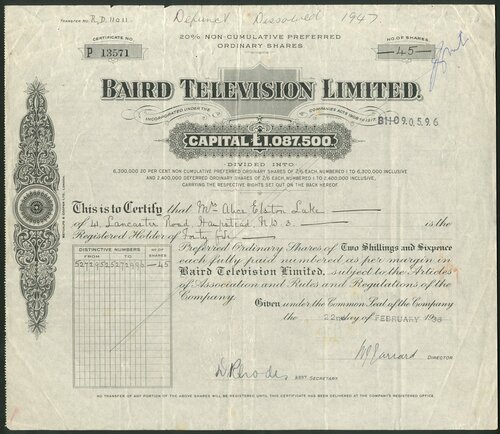 TRANSFER No. R.D. 11011
Defunct Dissolved 1947
CERTIFICATE No.
P 13571
20% NON-CUMULATIVE PREFERRED
ORDINARY SHARES
NO. OF SHARES
—45—
BAIRD TELEVISION LIMITED.
INCORPORATED UNDER THE COMPANIES ACTS 1908 TO 1917.
BH09.05.96
CAPITAL £1,087,500
DIVIDED INTO
6,300,000 20 PER CENT NON-CUMULATIVE PREFERRED ORDINARY SHARES OF 2/6 EACH, NUMBERED 1 TO 6,300,000 INCLUSIVE
AND 2,400,000 DEFERRED ORDINARY SHARES OF 2/6 EACH, NUMBERED 1 TO 2,400,000 INCLUSIVE,
CARRYING THE RESPECTIVE RIGHTS SET OUT ON THE BACK HEREOF.
This is to Certify that Mrs Alice Elston Lake
of Lancaster Road, Hampstead N.W.3. is the
Registered Holder of Forty five
Preferred Ordinary Shares of Two Shillings and Sixpence
each fully paid numbered as per margin in
Baird Television Limited, subject to the Articles
of Association and Rules and Regulations of the
Company.
DISTINCTIVE NUMBERS
FROM TO
No. OF SHARES
5272952 5272996 —45
Given under the Common Seal of the Company
the 22nd day of FEBRUARY 19
DIRECTOR
D Rhodes ASST. SECRETARY
NO TRANSFER OF ANY PORTION OF THE ABOVE SHARES WILL BE REGISTERED UNTIL THIS CERTIFICATE HAS BEEN DELIVERED AT THE COMPANY'S REGISTERED OFFICE.